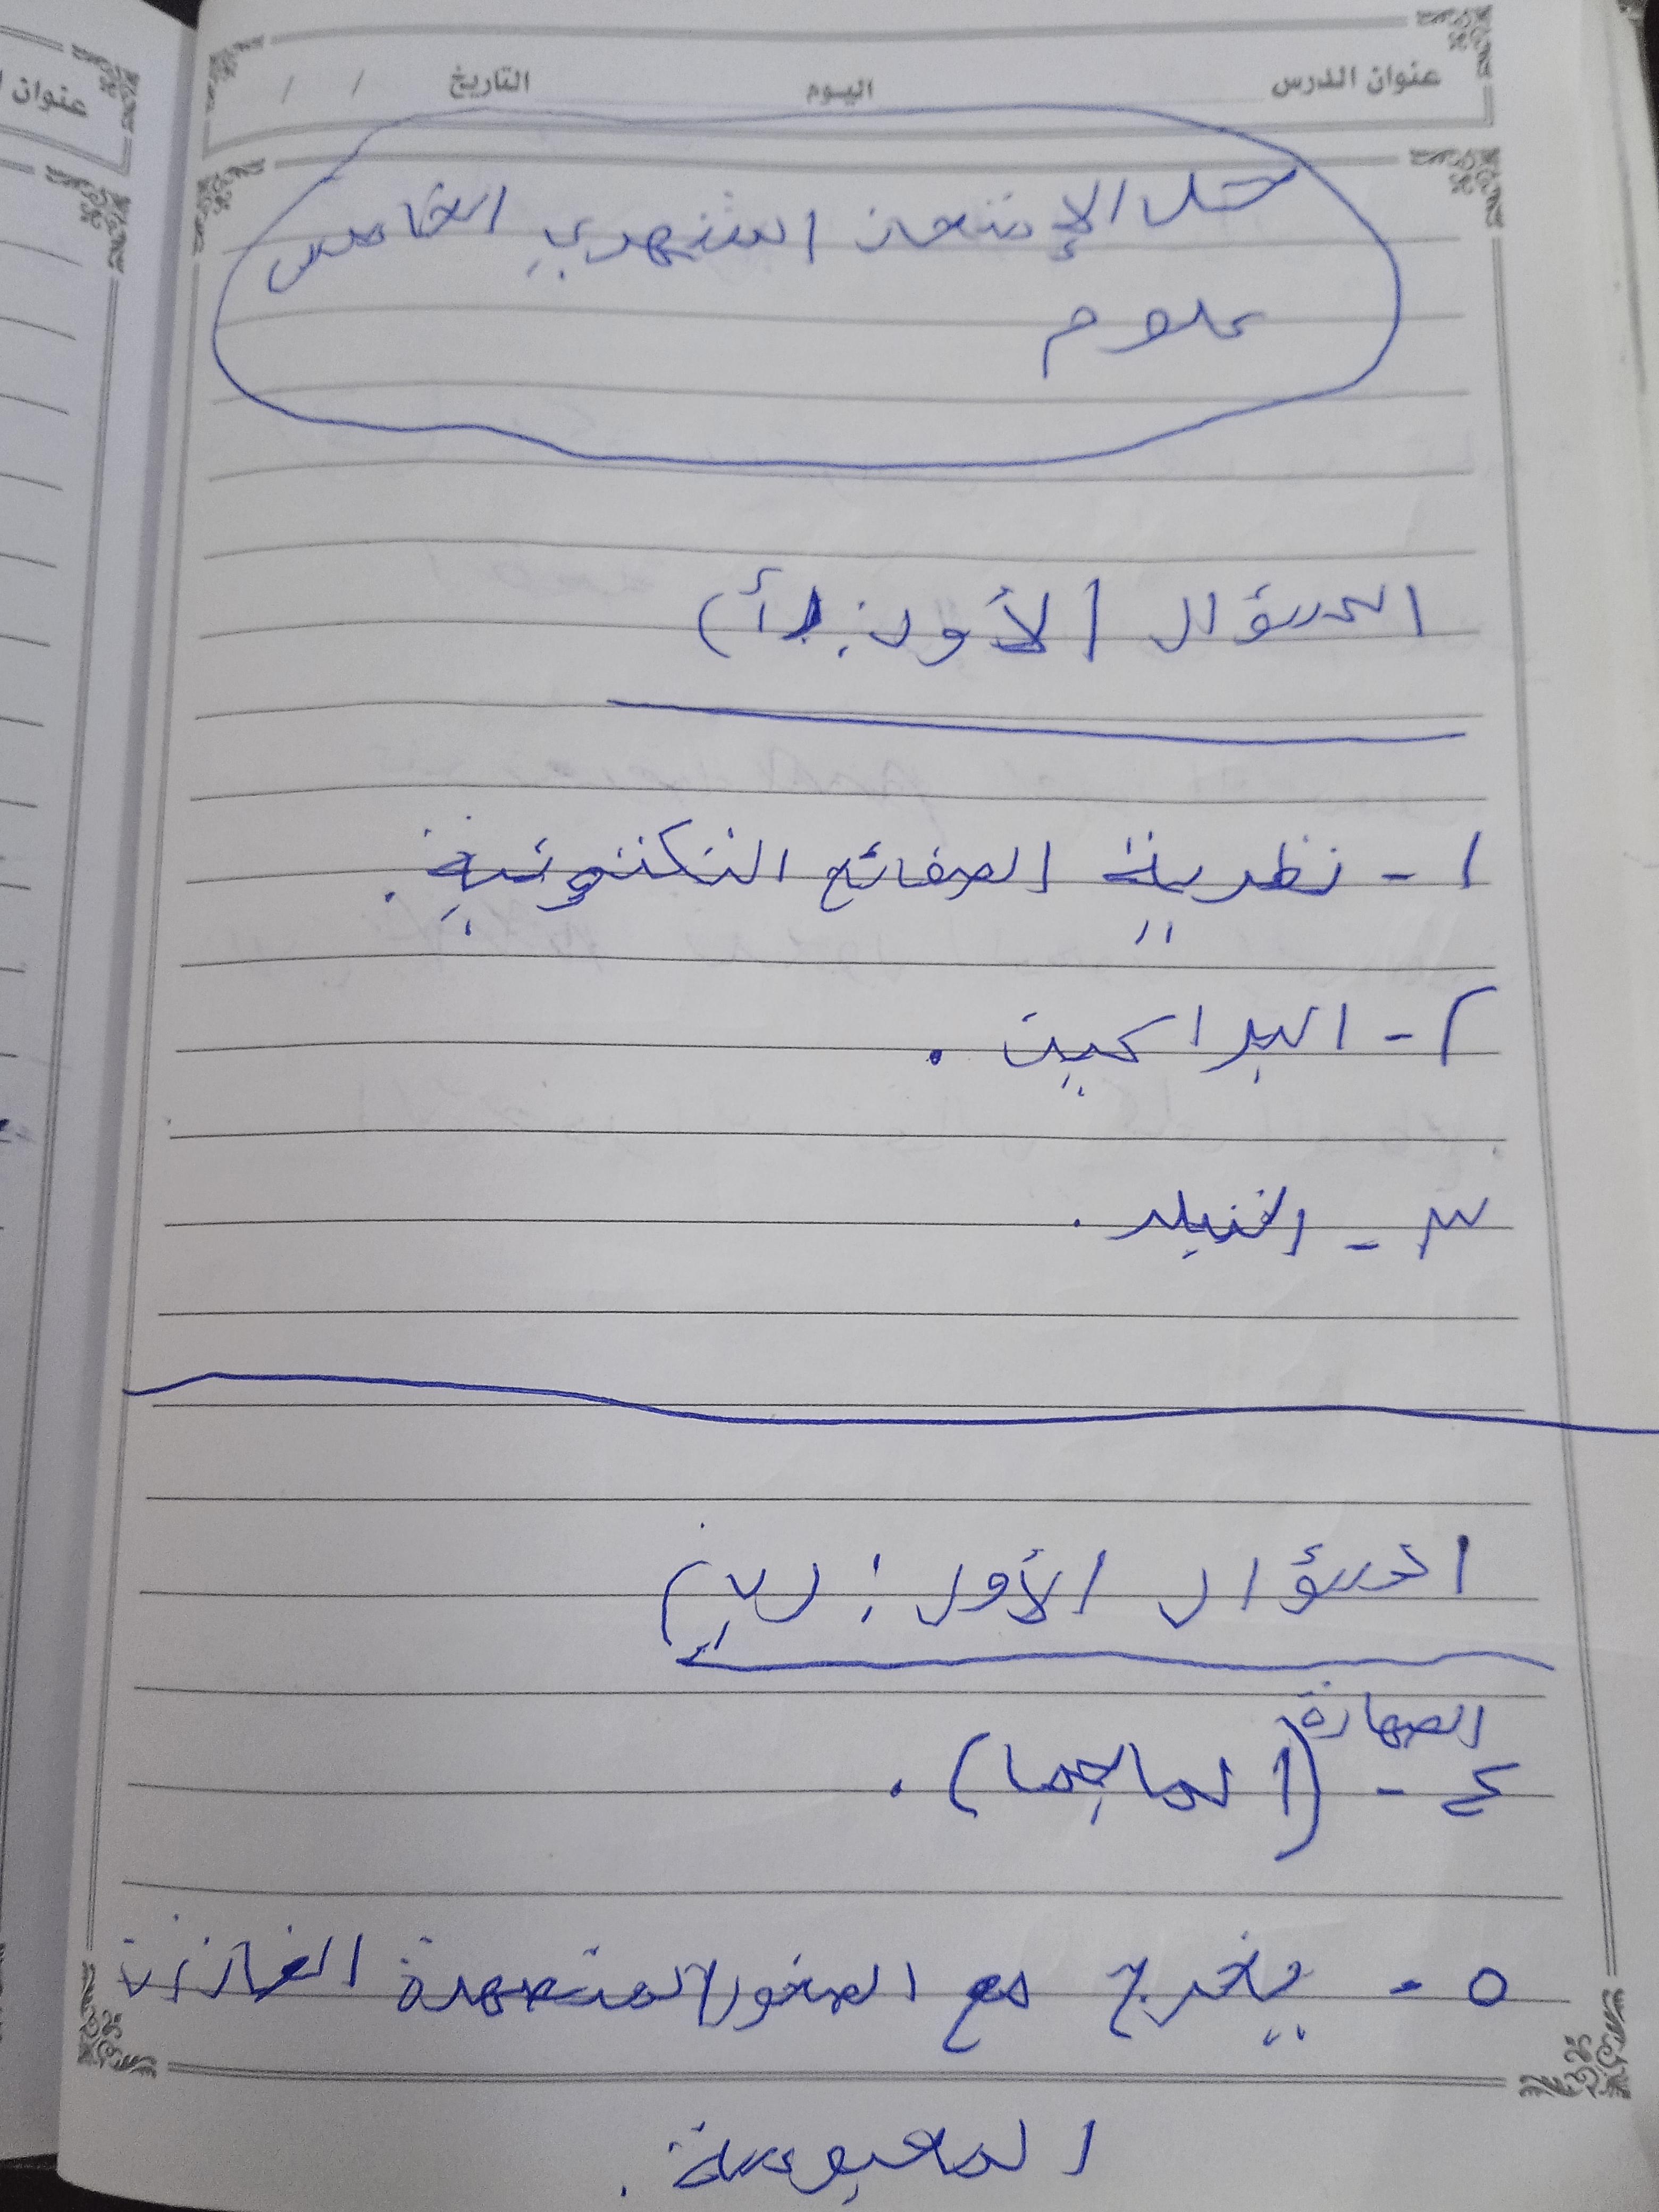 عنوان الدرس اليوم التاريخ / /
عنوان
حل الإمتحان الشهري الخامس
علوم
السؤال الأول: (أ)
١- نظرية الصفائح التكتونية.
٢- البراكين.
٣-
السؤال الأول: (ب)
الصهارة
٤- (الماجما).
٥- يخرج مع الصخور المنصهرة الغازات
المحبوسة.